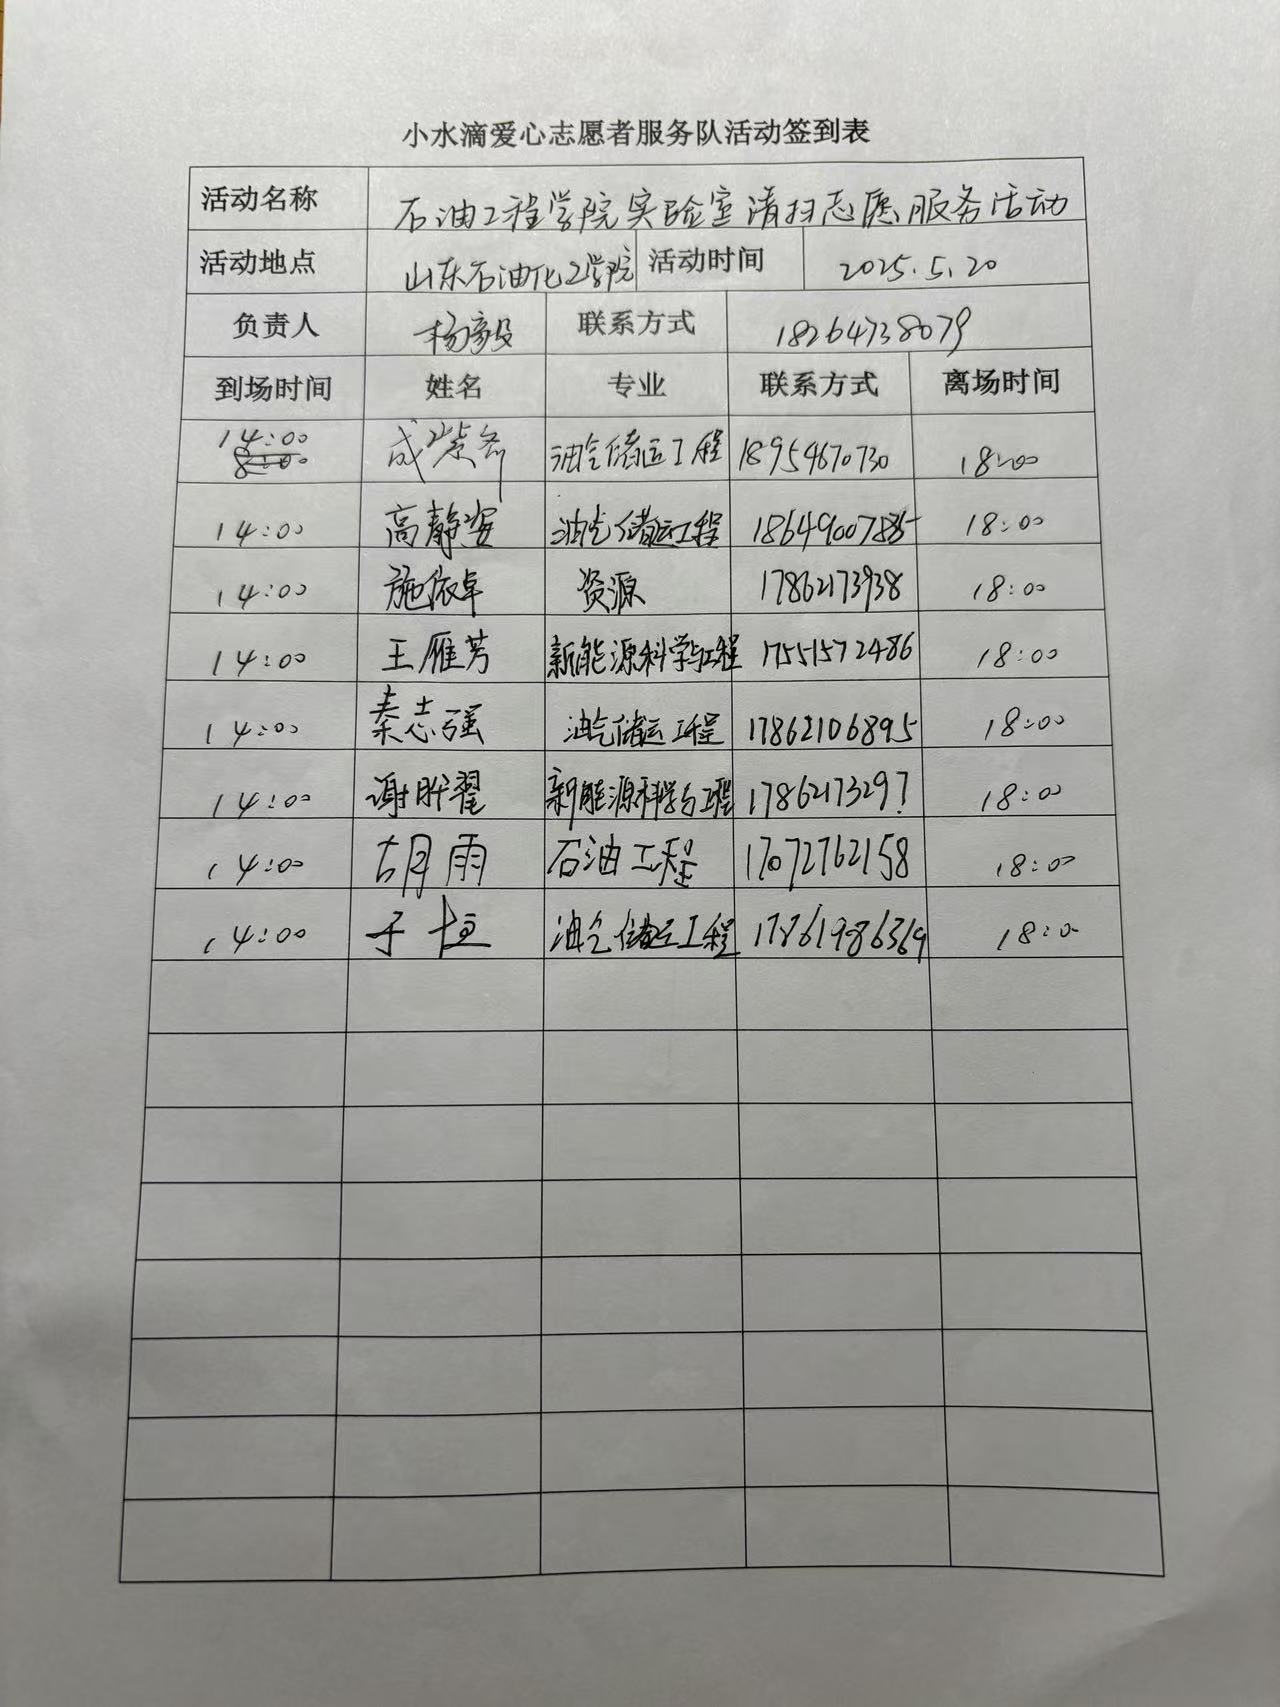 小水滴爱心志愿者服务队活动签到表
活动名称 石油工程学院实验室清扫志愿服务活动
活动地点 山东石油化工学院 活动时间 2025.5.20
负责人 杨毅 联系方式 18264738079
到场时间 姓名 专业 联系方式 离场时间
14:00 成紫 油气储运工程 18954670730 18:00
8:00
14:00 高静姿 油气储运工程 18649007885 18:00
14:00 施依卓 资源 17862173938 18:00
14:00 王雁芳 新能源科学与工程 17551572486 18:00
14:00 秦志强 油气储运工程 17862106895 18:00
14:00 谢昕翟 新能源科学与工程 1786217329? 18:00
14:00 胡雨 石油工程 17072762158 18:00
14:00 于恒 油气储运工程 17861986369 18:0